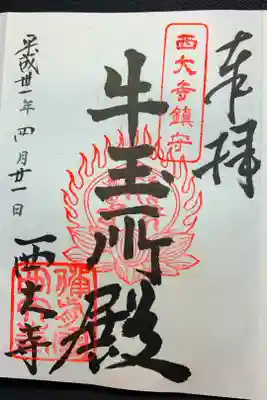 奉拝
西大寺鎮守
牛玉所殿
平成廿一年四月廿一日
西大寺